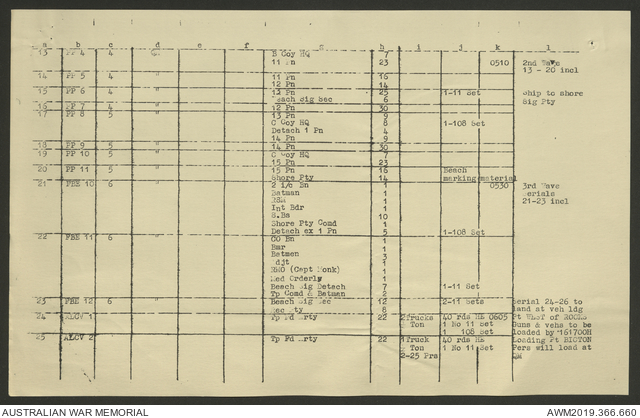 a b c d e f g h i j k l
13 PP 4 4 B Coy HQ 7
11 Pn 23 0510 2nd Wave
13 - 20 incl
14 PP 5 4 " 11 Pn 16
12 Pn 14
15 PP 6 4 " 12 Pn 25 1-11 Set Ship to shore
Beach Sig Sec 6 Sig Pty
16 PP 7 4 " 12 Pn 30
17 PP 8 5 " 13 Pn 9
C Coy HQ 8 1-108 Set
Detach 1 Pn 4
14 Pn 9
18 PP 9 5 " 14 Pn 30
19 PP 10 5 " C Coy HQ 7
15 Pn 23
20 PP 11 5 " 15 Pn 16 Beach
Shore Pty 14 marking material
21 FBE 10 6 " 2 i/c Bn 1 0530 3rd Wave
Batman 1 Serials
RSM 1 21-23 incl
Int Bdr 1
S.Bs 10
Shore Pty Comd 1
Detach ex 1 Pn 5 1-108 Set
22 FBE 11 6 " CO Bn 1
Bmr 1
Batmen 3
Adjt 1
RMO (Capt Monk) 1
Med Orderly 1
Beach Sig Detach 7 1-11 Set
Tp Comd & Batman 2
23 FBE 12 6 " Beach Sig Sec 12 2-11 Sets Serial 24-26 to
Sec Pty 8 land at veh ldg
24 ALCV 1 Tp Fd Arty 22 2 Trucks 40 rds HE 0605 Pt WEST of ROCKS
Ton 1 No 11 Set Guns & vehs to be
1 108 Set loaded by 161700H
25 ALCV 2 Tp Fd Arty 22 1 Truck 40 rds HE Loading Pt BICTON
Ton 1 No 11 Set Pers will load at
2-25 Prs QM
AUSTRALIAN WAR MEMORIAL AWM2019.366.660